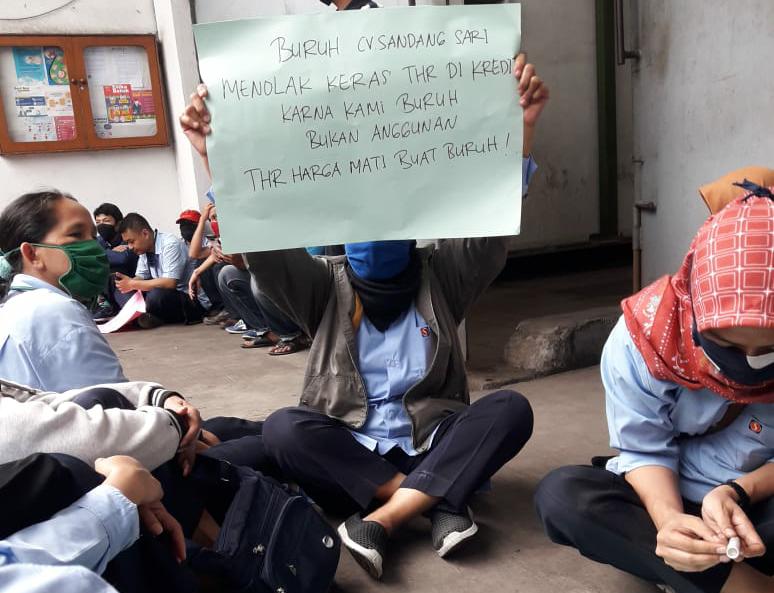 BURUH CV SANDANG SARI
MENOLAK KERAS THR DI KREDI
KARNA KAMI BURUH
BUKAN ANGGUNAN
THR HARGA MATI BUAT BURUH!